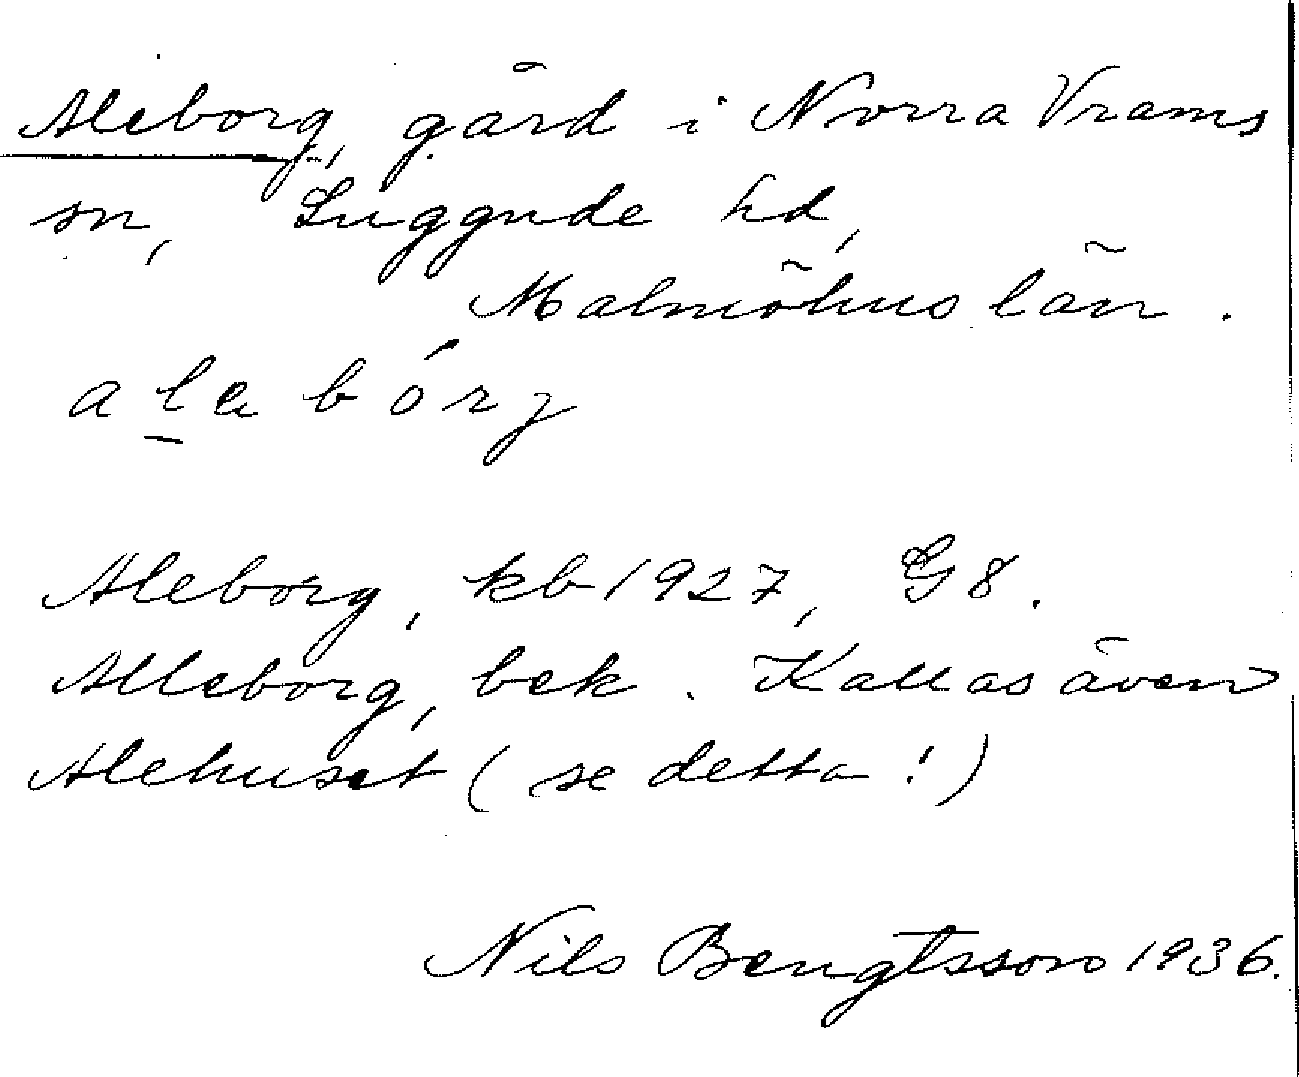 Aleborg, gård i Norra Vrams
sn, Luggude hd,
Malmöhus län.
a l a b ó r j
Aleborg, kb 1927, G8.
Alleborg, bek. Kallas även
Alehuset (se detta!)
Nils Bengtsson 1936.